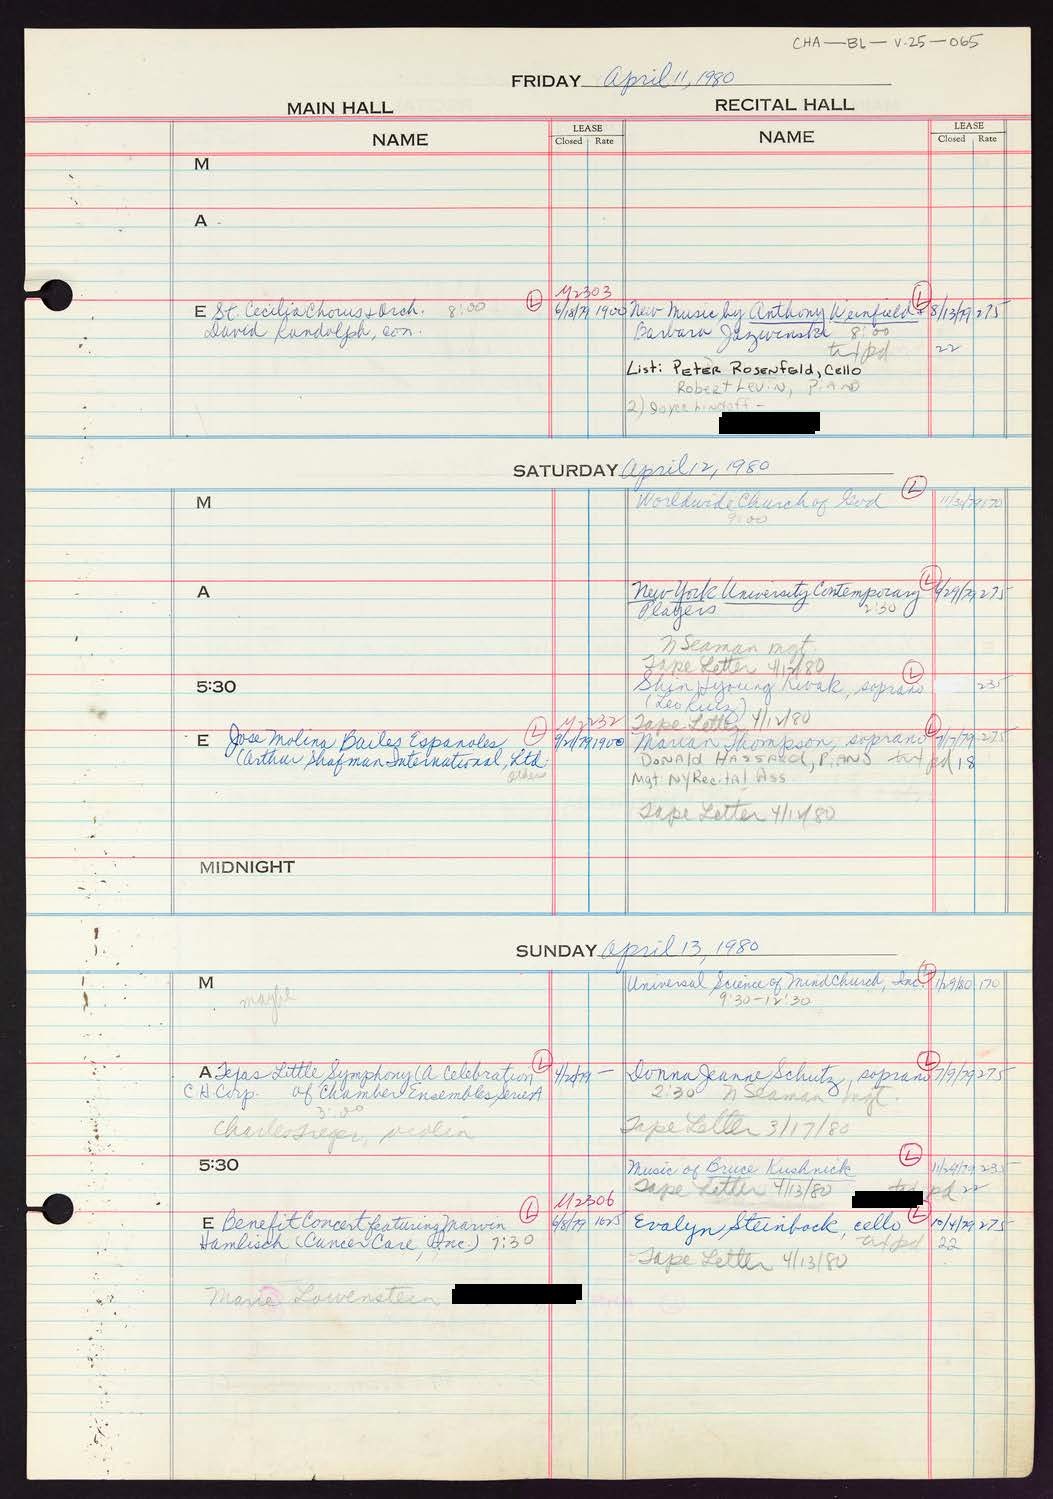 CHA—BL—V.25—065
FRIDAY April 11, 1980
MAIN HALL
RECITAL HALL
NAME
LEASE
Closed Rate
NAME
LEASE
Closed Rate
M
A
E St. Cecilia Chorus & Orch. 8:00
David Randolph, con.
L
M2303
6/18/79 1900
New Music by Anthony Weinfield &
Barbara Jazwinski 8:00
L
8/13/79 275
txt pd 22
List: Peter Rosenfeld, Cello
Robert Levin, Piano
2) Joyce
SATURDAY April 12, 1980
M
Worldwide Church of God
9:00
L
170
A
New York University Contemporary
Players 2:30
L
275
N Seaman mgt.
Tape Letter 4/12/80
5:30
Shin Hyoung Kwak, soprano
L
235
Tape Letter 4/12/80
E Jose Molina Bailes Espanoles
(Arthur Shafman International, Ltd.
others
L
M2232
1900
Marian Thompson, soprano
L
275
Donald Hassard, Piano txt pd 18
Mgt: NY Recital Ass
Tape Letter 4/12/80
MIDNIGHT
SUNDAY April 13, 1980
M
maybe
Universal Science of Mind Church, Inc.
9:30–12:30
L
1/29/80 170
A Texas Little Symphony (A Celebration
C.H. Corp. of Chamber Ensembles, Series A
3:00
L
Charles Treger, violin
Donna Jeanne Schutz, soprano
2:30 N Seaman mgt.
L
7/9/79 275
Tape Letter 3/17/80
5:30
Music of Bruce Kushnick
L
11/29/79 235
Tape Letter 4/13/80 txt pd 22
E Benefit Concert featuring Marvin
Hamlisch (Cancer Care, Inc.) 7:30
L
M2306
6/8/79 1625
Evalyn Steinbock, cello
L
10/4/79 275
txt pd 22
Tape Letter 4/13/80
Marie Lowenstein